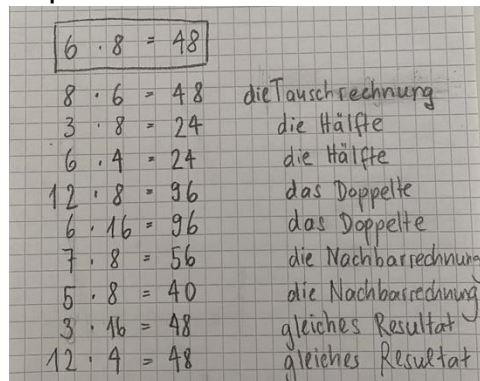 6 · 8 = 48
8 · 6 = 48 die Tauschrechnung
3 · 8 = 24 die Hälfte
6 · 4 = 24 die Hälfte
12 · 8 = 96 das Doppelte
6 · 16 = 96 das Doppelte
7 · 8 = 56 die Nachbarrechnung
5 · 8 = 40 die Nachbarrechnung
3 · 16 = 48 gleiches Resultat
12 · 4 = 48 gleiches Resultat